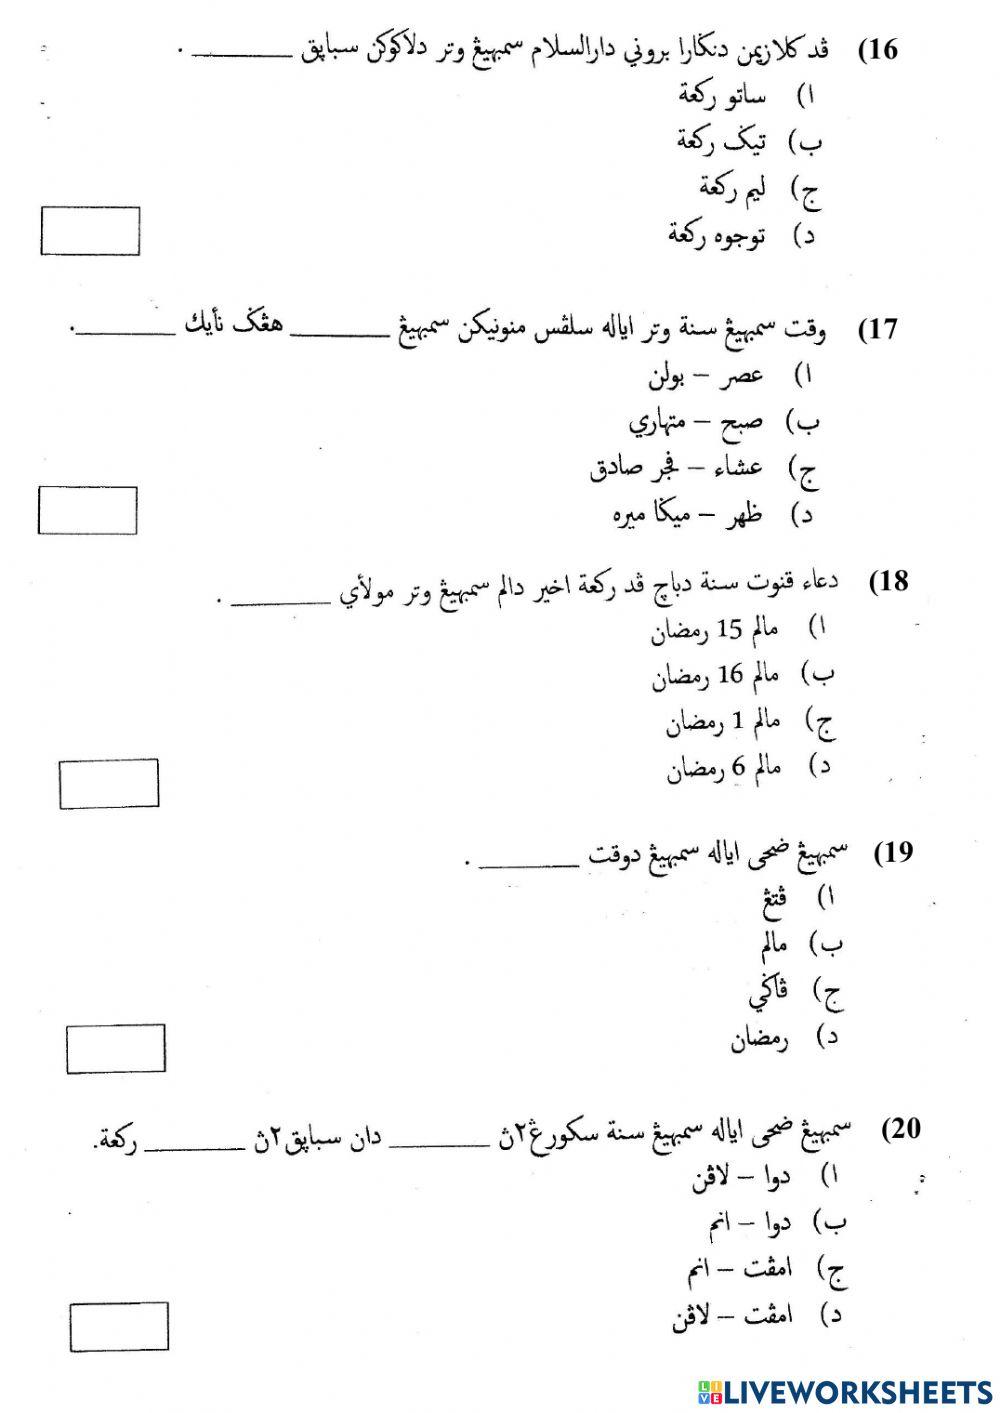 16) ڤد كلازيمن دنݢارا بروني دارالسلام سمبهيڠ وتر دلاكوكن سباڽق ________ .
ا) ساتو ركعة
ب) تيݢ ركعة
ج) ليم ركعة
د) توجوه ركعة
17) وقت سمبهيڠ سنة وتر اياله سلڤس منونيكن سمبهيڠ ________ هڠݢ نأيك ________.
ا) عصر – بولن
ب) صبح – متهاري
ج) عشاء – فجر صادق
د) ظهر – ميݢا ميره
18) دعاء قنوت سنة دباچ ڤد ركعة اخير دالم سمبهيڠ وتر مولأي ________ .
ا) مالم 15 رمضان
ب) مالم 16 رمضان
ج) مالم 1 رمضان
د) مالم 6 رمضان
19) سمبهيڠ ضحى اياله سمبهيڠ دوقت ________ .
ا) ڤتڠ
ب) مالم
ج) ڤاݢي
د) رمضان
20) سمبهيڠ ضحى اياله سمبهيڠ سنة سكورڠ٢ڽ ________ دان سباڽق٢ڽ ________ ركعة.
ا) دوا – لاڤن
ب) دوا – انم
ج) امڤت – انم
د) امڤت – لاڤن
LIVEWORKSHEETS